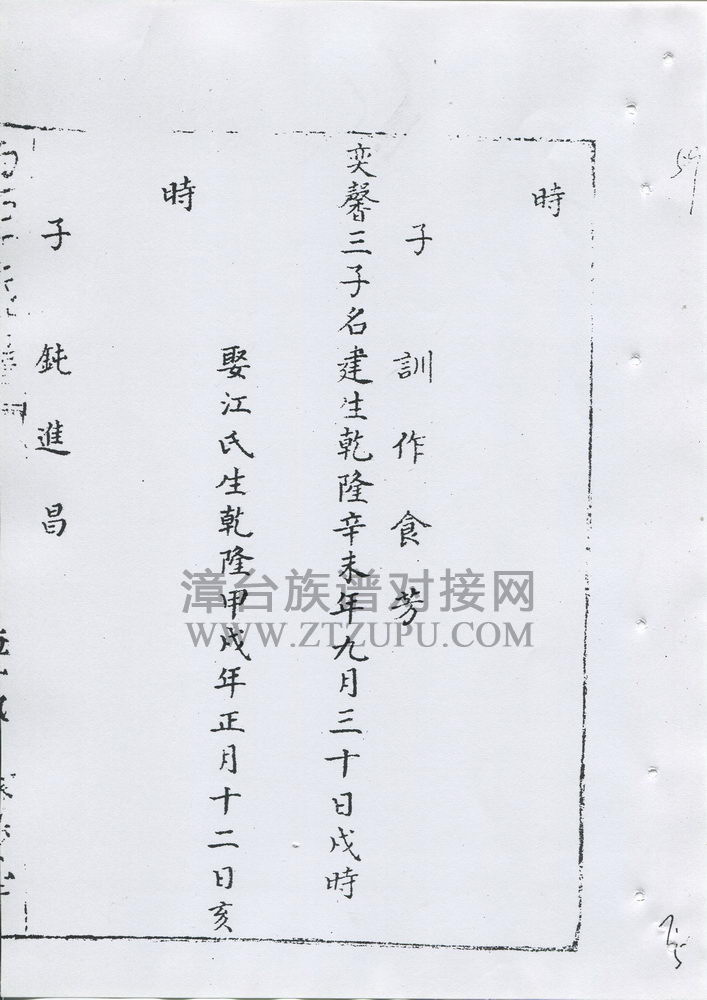 時
子訓作食芳
奕馨三子名建生乾隆辛未年九月三十日戌時
娶江氏生乾隆甲戌年正月十二日亥
時
子鈍進昌
漳台族谱对接网
WWW.ZTZUPU.COM
59